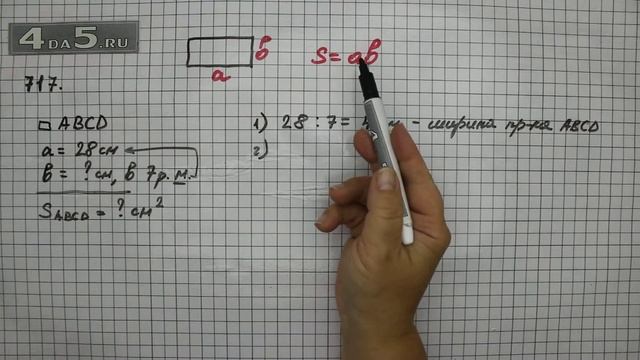 4DA5.RU
717.
a
b
S = ab
ABCD
a = 28 см
b = ? см, в 7 р. м.
S ABCD = ? см²
1) 28 : 7 = - ширина пр-ка ABCD
2)